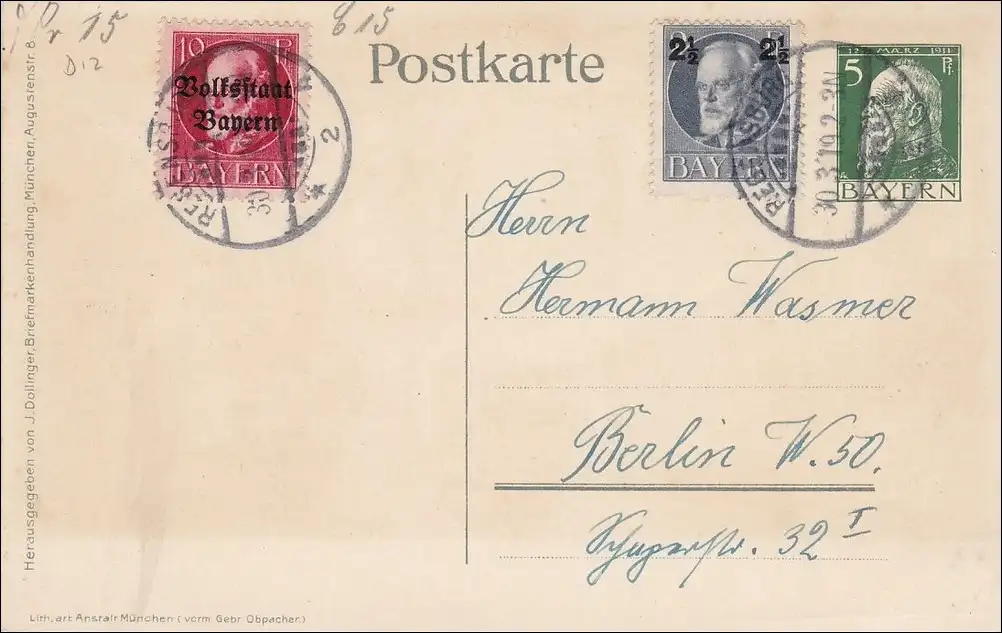 Pr 15
E 15
D 12
Postkarte
10 P
Volksstaat
Bayern
BAYERN
2½ 2½
BAYERN
12. MÄRZ 1911
5 Pf.
BAYERN
REGENSBURG
30
2
REGENSBURG
30.3.19.2-3N
Herrn
Hermann Wasmer
Berlin W. 50.
Schaperstr. 32 I
Herausgegeben von J. Dollinger, Briefmarkenhandlung, München, Augustenstr. 8.
Lith. art. Anstalt München (vorm Gebr Obpacher.)